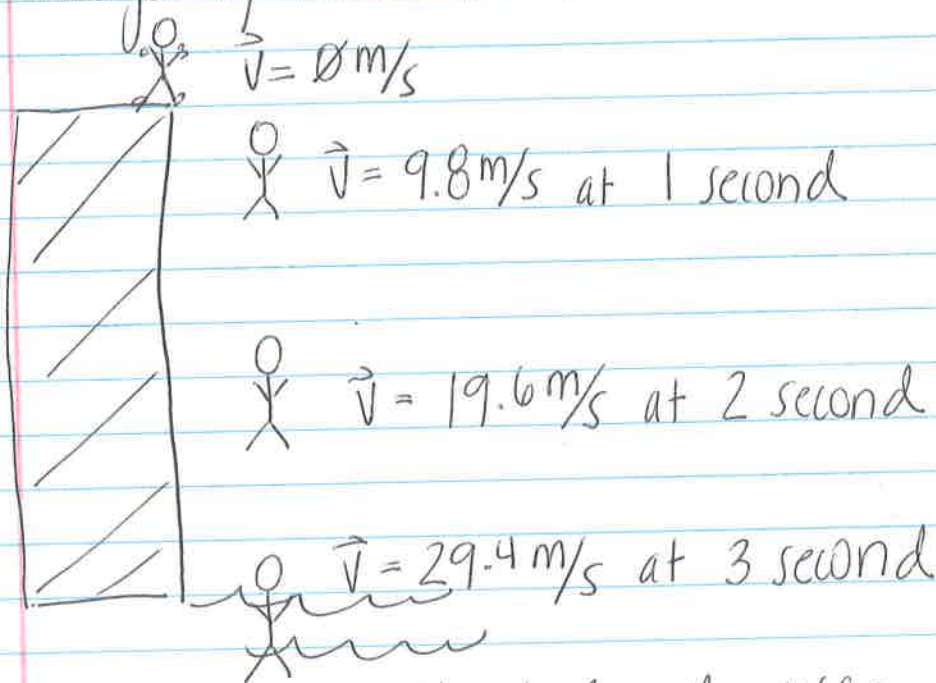 v⃗ = 0 m/s
v⃗ = 9.8 m/s at 1 second
v⃗ = 19.6 m/s at 2 second
v⃗ = 29.4 m/s at 3 second